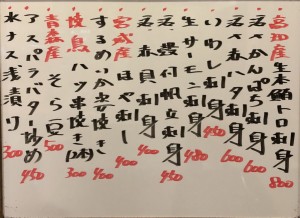 生本鮪トロ刺身 800
活〆かんぱち刺身 600
活〆赤ハタ刺身 600
いわし刺身 450
生サーモン刺身 480
活 付帆立刺身 450
活赤貝刺身
宮城産 ほや刺 400
するめいか 焼き 400
焼鳥 ハツ串焼き 300
青森産 そら豆 500
アスパラバター炒め 450
水ナス浅漬り 300